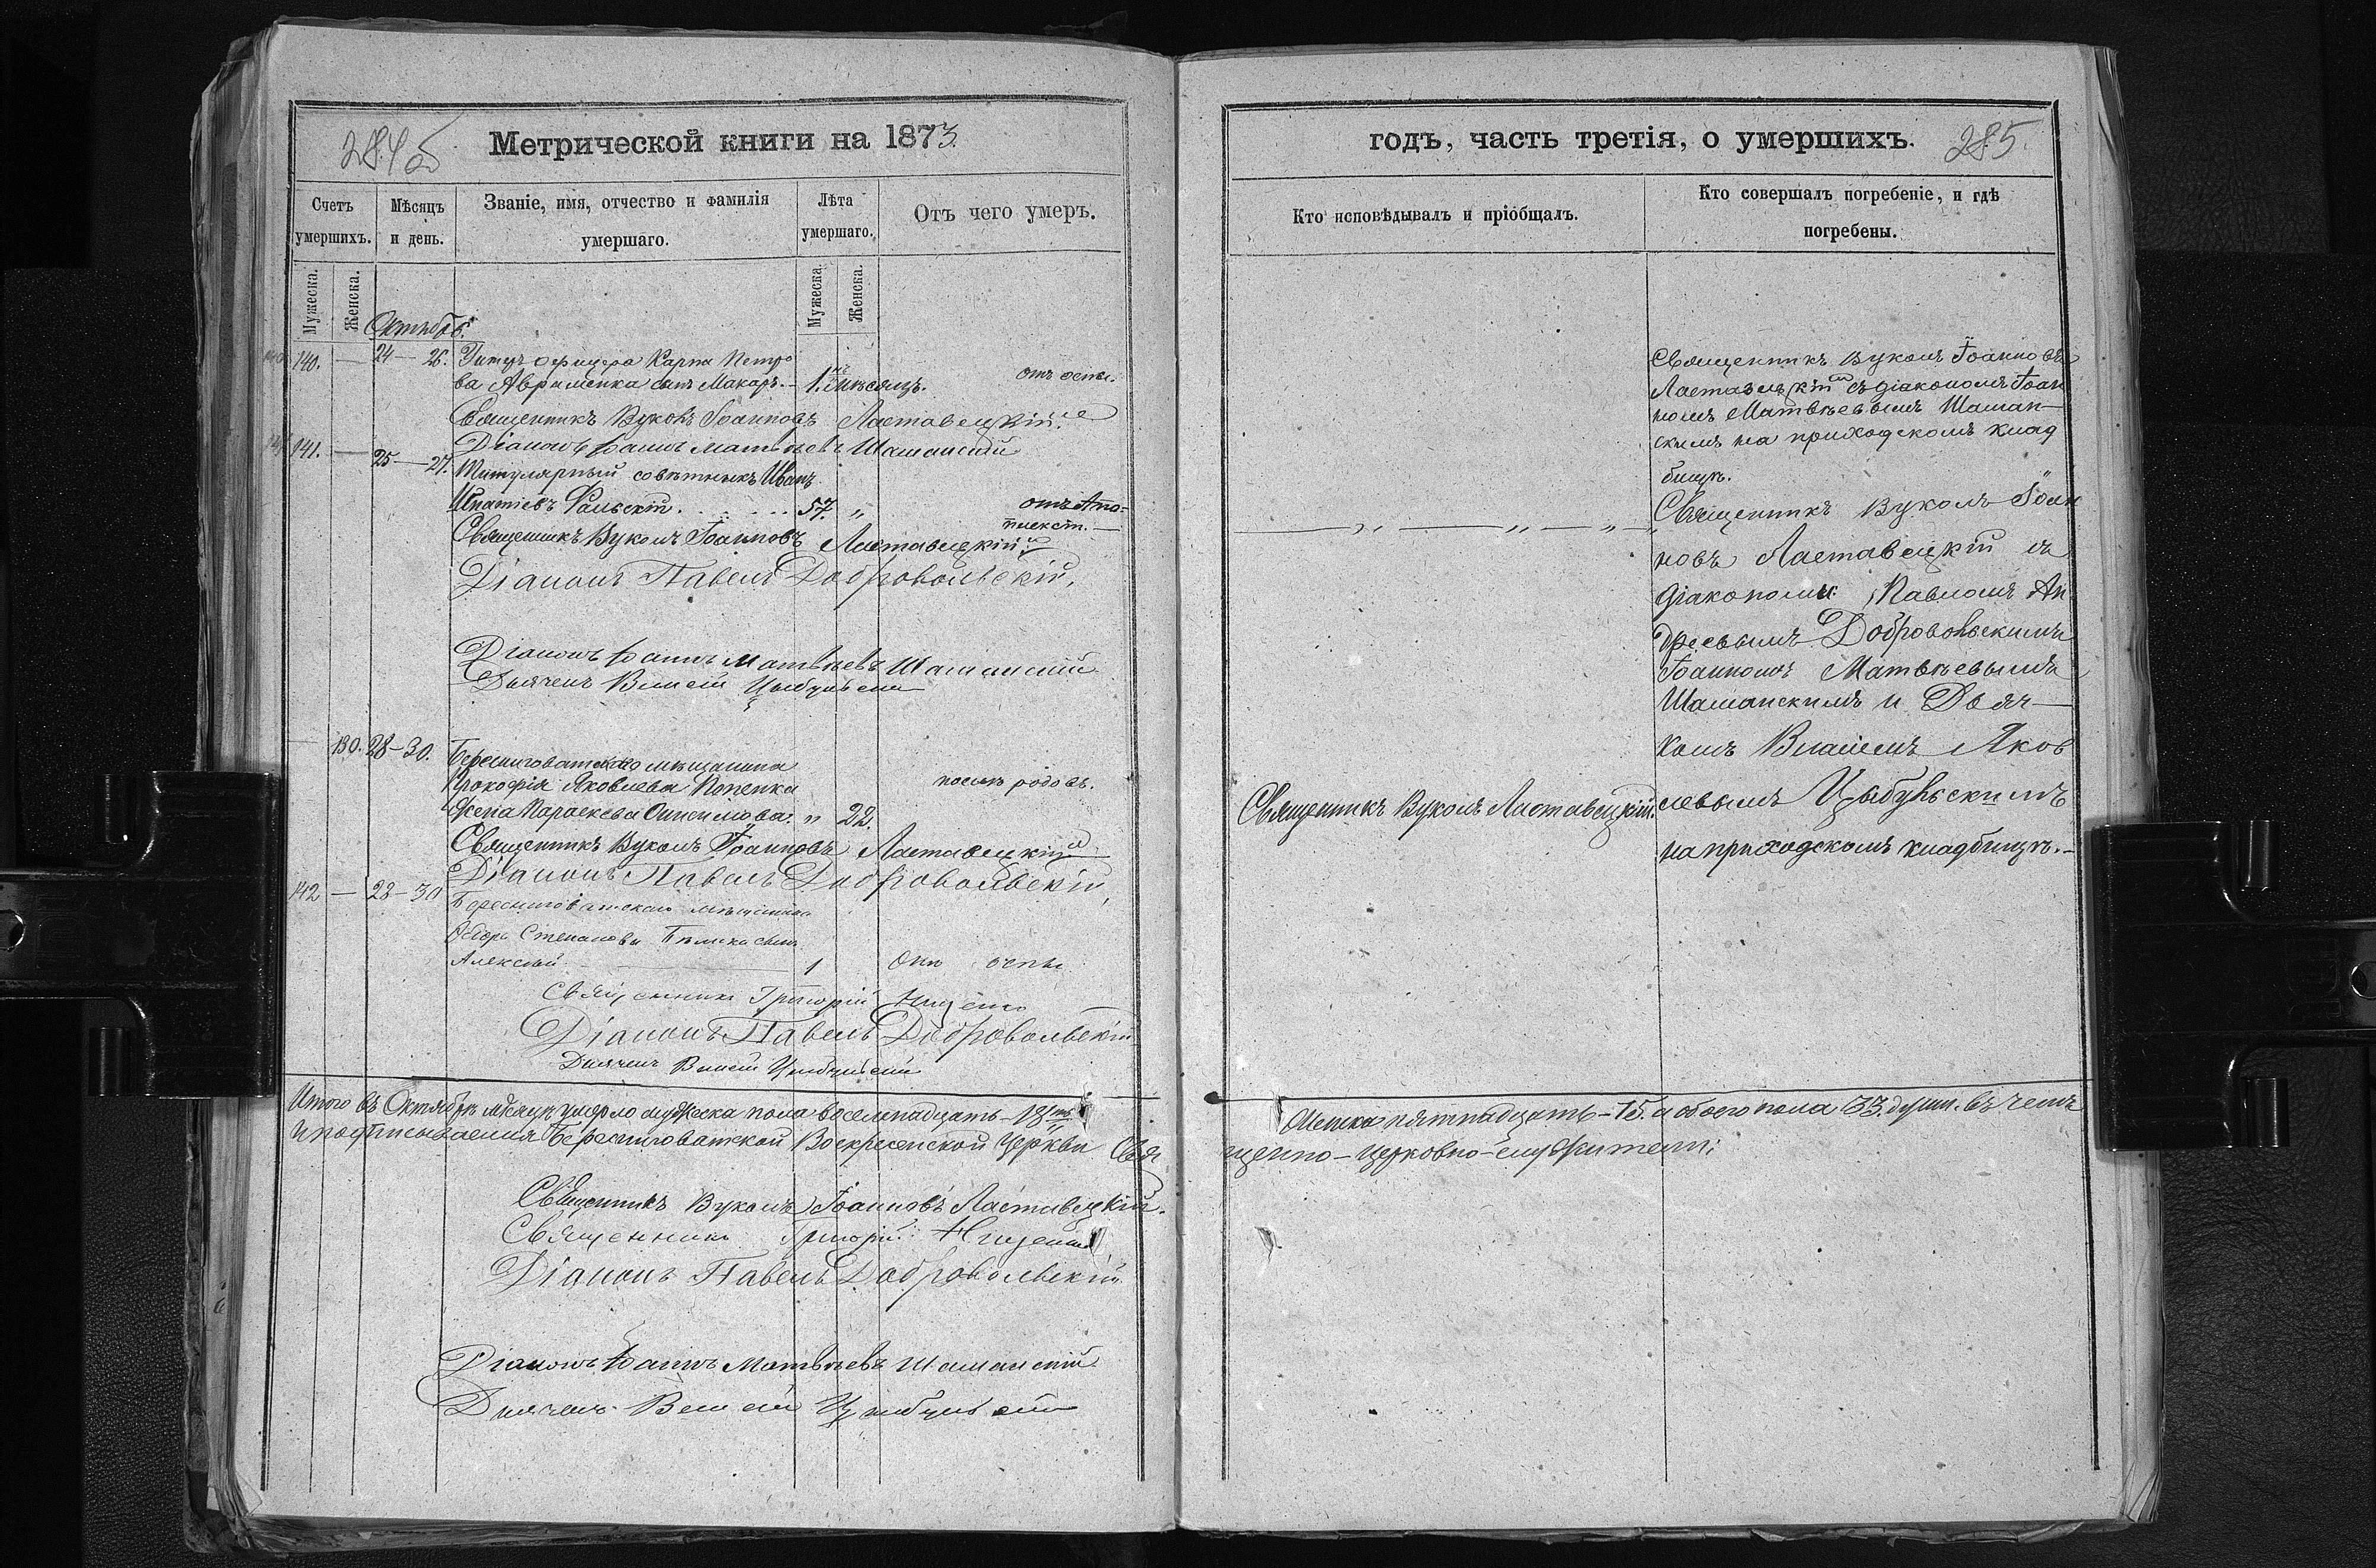 284об
Метрической книги на 1873.
Счетъ умершихъ.
Мѣсяцъ и день.
Званіе, имя, отчество и фамилія умершаго.
Лѣта умершаго.
Отъ чего умеръ.
Мужеска.
Женска.
Мужеска.
Женска.
Октябрь
140. — 24 — 26. Унтеръ офицера Карпа Петро
ва Авраменка сынъ Макаръ. — 1. мѣсяцъ. отъ оспы.
Священникъ Вуколъ Іоанновъ Ластавецкій.
141. — 25 — 27. Діаконъ Іоаннъ Матвѣевъ Шаманскій
Титулярный совѣтникъ Иванъ
Игнатіевъ Фальскій. . . . . . 57. „ отъ Апо-
плексіи. —
Священникъ Вуколъ Іоанновъ Ластавецкій
Діаконъ Павелъ Добровольскій,
Діаконъ Іоаннъ Матвѣевъ Шаманскій
Дьячекъ Власій Цыбульскій
— 130. 28 — 30. Бересниговатскаго мѣщанина
Прокофія Яковлева Попенка
жена Параскева Онисимова. „ 22. послѣ родовъ.
Священникъ Вуколъ Іоанновъ Ластавецкій
Діаконъ Павелъ Добровольскій,
142 — 28 — 30 Бересниговатскаго мѣщанина
Ѳедора Степанова Бѣлика сынъ
Алексѣй — 1 отъ оспы
Священникъ Григорій Нищенко
Діаконъ Павелъ Добровольскій
Дьячекъ Власій Цыбульскій
Итого въ Октябрѣ мѣсяцѣ умерло мужеска пола восемнадцать — 18ть
и подписываемся Бересниговатской Воскресенской Церкви Свя
Священникъ Вуколъ Іоанновъ Ластавецкій.
Священникъ Григорій Нищенко
Діаконъ Павелъ Добровольскій
Діаконъ Іоаннъ Матвѣевъ Шаманскій
Дьячекъ Власій Цыбульскій
годъ, часть третія, о умершихъ.
285.
Кто исповѣдывалъ и пріобщалъ.
Кто совершалъ погребеніе, и гдѣ
погребены.
Священникъ Вуколъ Іоанновъ
Ластавецкій съ діакономъ Іоан
номъ Матвѣевымъ Шаман—
скимъ на приходскомъ клад
бищѣ.
— „ — „ — „ — „ Священникъ Вуколъ Іоан
новъ Ластавецкій съ
діаконами: Павломъ Ан
дреевымъ Добровольскимъ
Іоанномъ Матвѣевымъ
Шаманскимъ и Дьяч—
комъ Власіемъ Яков
Священникъ Вуколъ Ластавецкій. левымъ Цыбульскимъ
на приходскомъ кладбищѣ. —
Женска пятнадцать — 15. а обоего пола 33. душ. въ чемъ
щенно — церковно — служители: